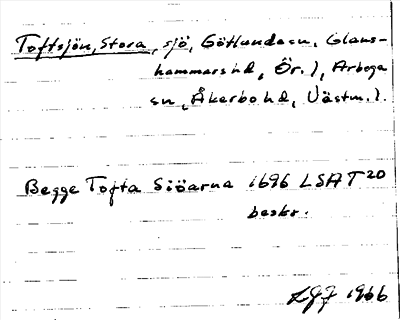 Toftsjön, Stora, sjö, Götlunda sn, (Glans-
hammars hd, Ör.), Arboga
sn, (Åkerbo hd, Västm.).
Begge Tofta Siöarna 1696 LSA T 20
beskr.
1966